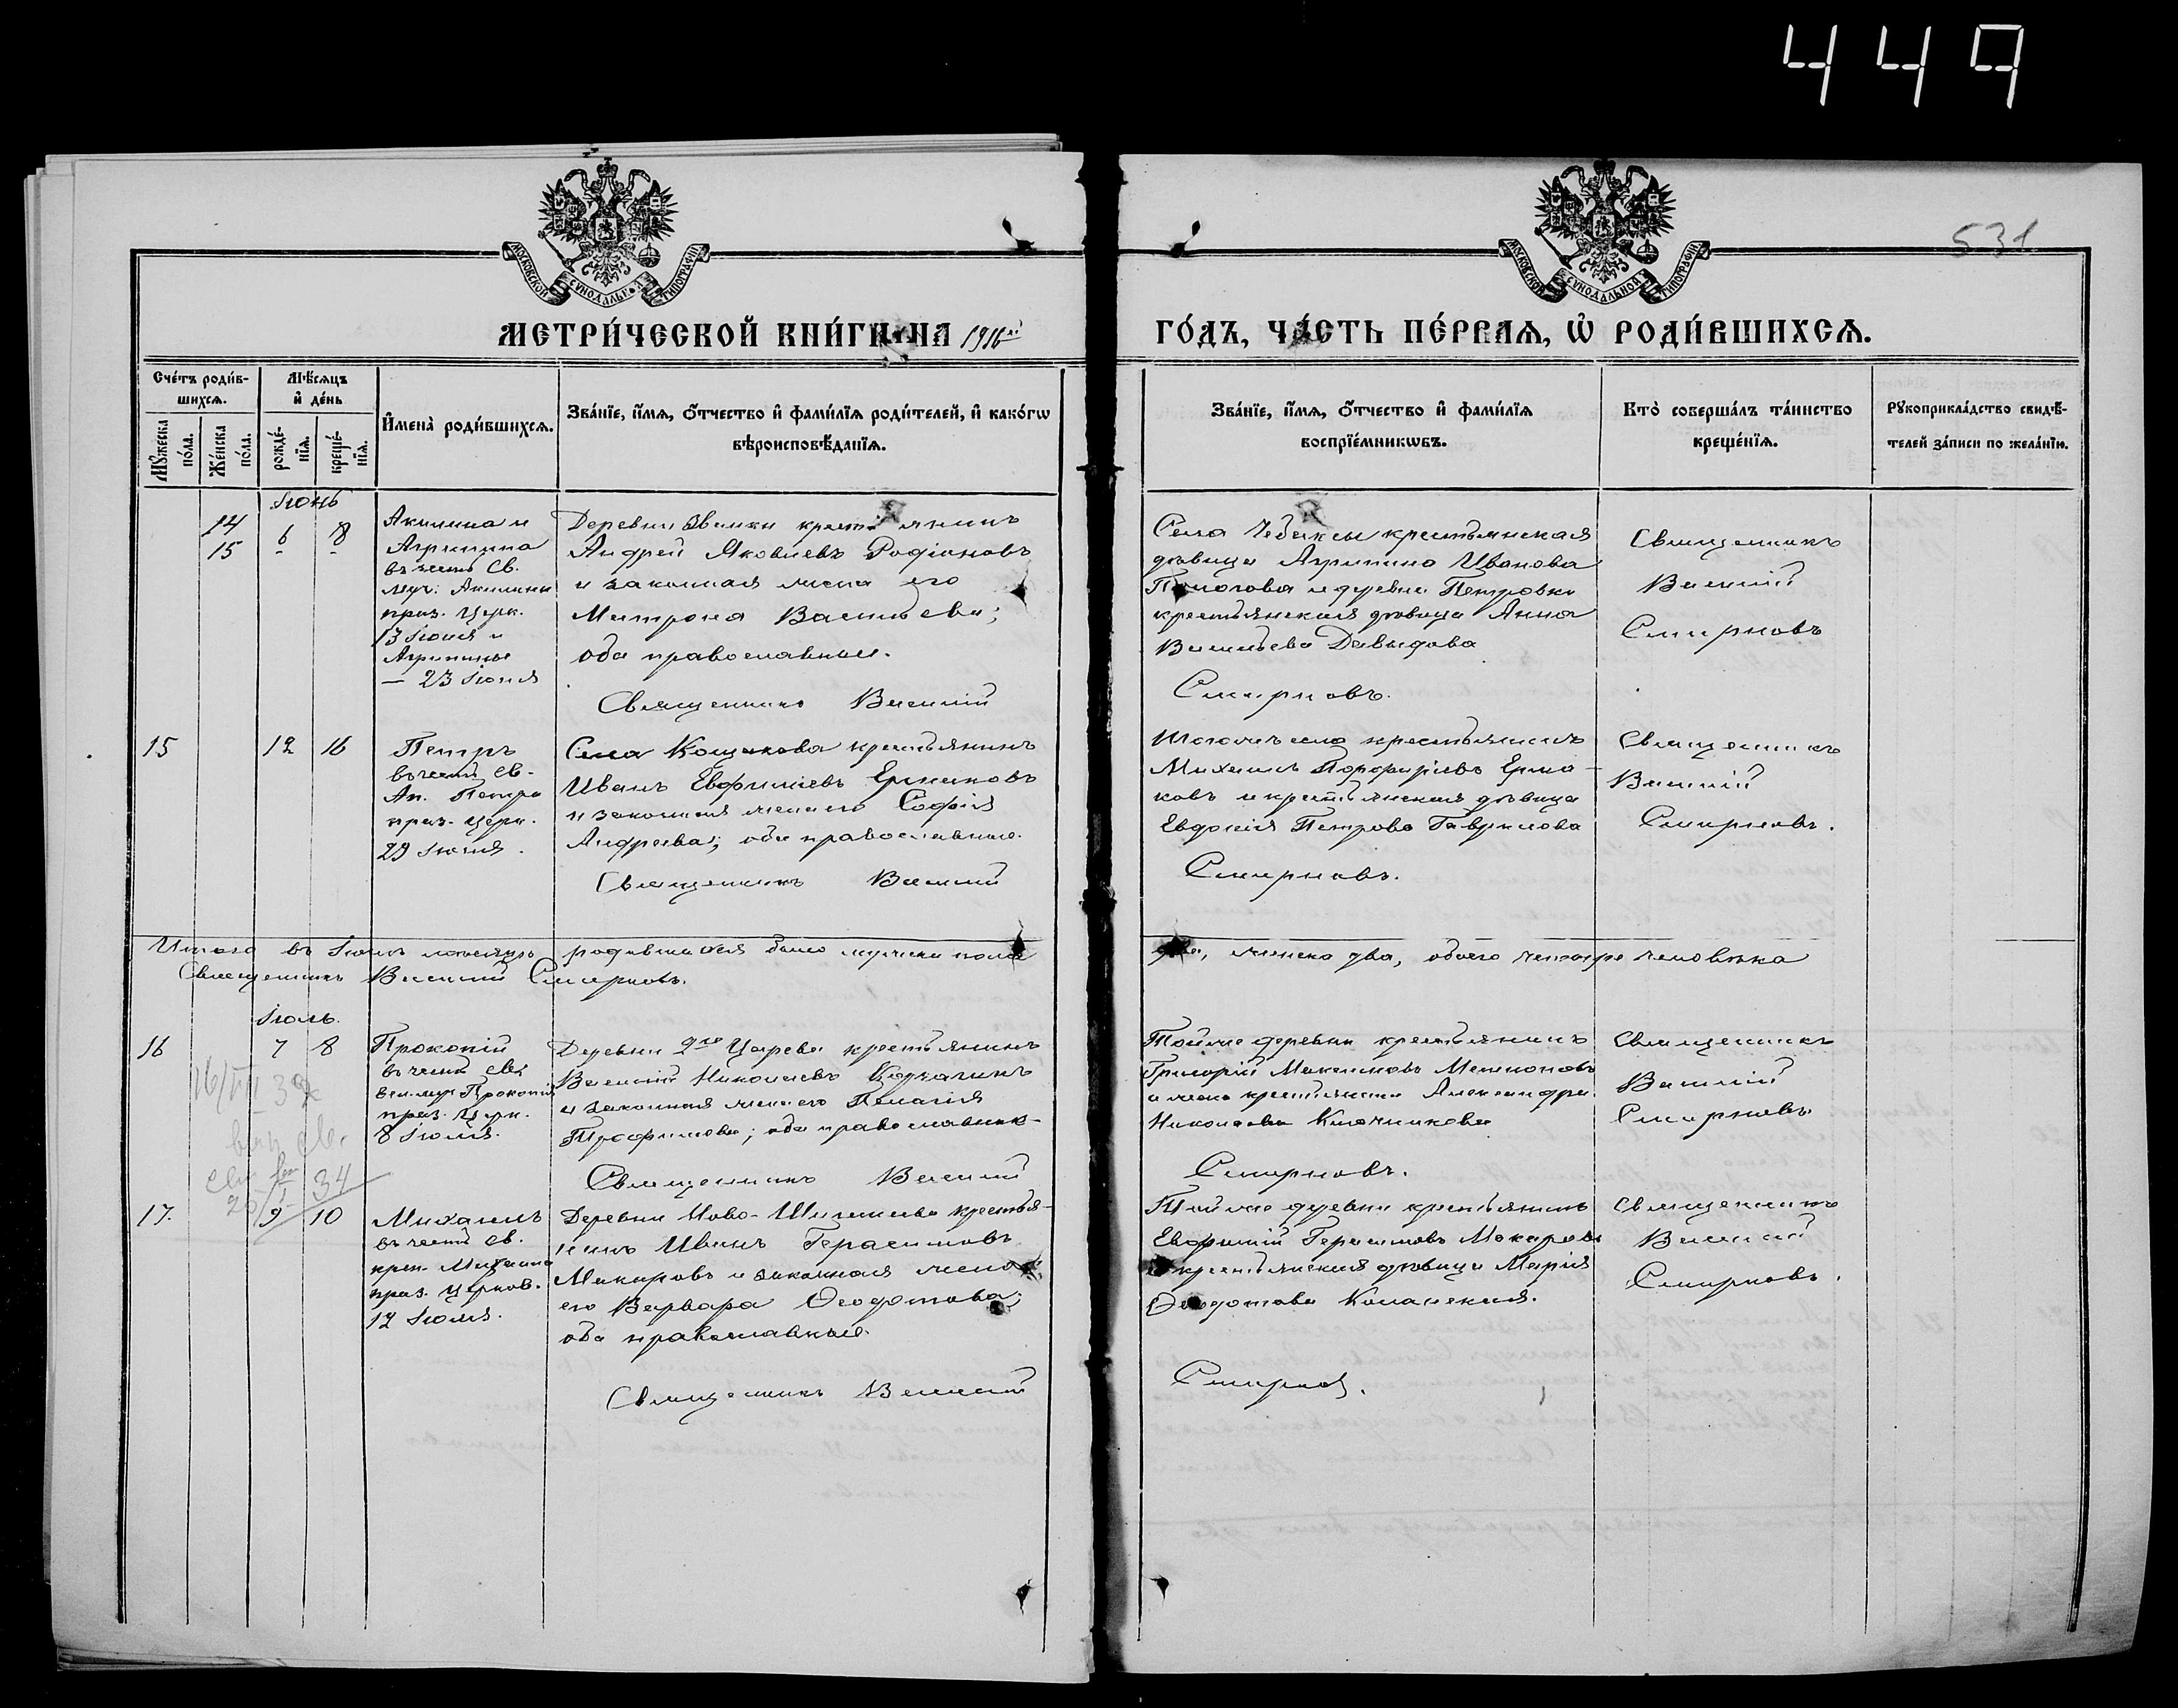 449
531
МОСКОВСКОЙ СУНОДАЛЬНОЙ ТИПОГРАФІИ
МОСКОВСКОЙ СУНОДАЛЬНОЙ ТИПОГРАФІИ
МЕТРИ́ЧЕСКОЙ КНИ́ГИ НА 1916й
ГО́ДЪ, ЧА́СТЬ ПЕ́РВАЯ, Ѡ РОДИ́ВШИХСЯ.
Сче́тъ роди́вшихся.
Му́жеска по́ла.
Же́нска по́ла.
Мѣ́сяцъ и де́нь
рожде́нїя.
креще́нїя.
Имена̀ роди́вшихся.
Зва́нїе, и́мя, о́тчество и фами́лїя роди́телей, и како́гѡ
вѣроисповѣ́данїя.
Зва́нїе, и́мя, о́тчество и фами́лїя
воспрїе́мникѡвъ.
Кто̀ соверша́лъ та́инство
креще́нїя.
Рукоприкла́дство свидѣ́-
телей за́писи по жела́нїю.
Іюнь
14
15
6
8
Акилина и
Агрипина
въ честь Св.
муч. Акилины
праз. Церк.
13 Іюня и
Агрипины
— 23 Іюня
Деревни крестьянинъ
Андрей Яковлевъ Родіоновъ
и законная жена его
Матрона Васильева;
оба православные.
Священникъ Василій
Села Чебаксы крестьянская
дѣвица Агрипина Иванова
и деревни Петровки
крестьянская дѣвица Анна
Васильева Давыдова
Смирновъ.
Священникъ
Василій
Смирновъ
15
12
16
Петръ
въ честь Св.
Ап. Петра
праз. Церк.
29 Іюня.
Села Кощакова крестьянинъ
Иванъ Евфиміевъ Ермаковъ
и законная жена его Софія
Андреева; оба православные.
Священникъ Василій
Тогоже села крестьянинъ
Михаилъ Порфирьевъ Ерма-
ковъ и крестьянская дѣвица
Евдокія Петрова Гаврилова
Смирновъ.
Священникъ
Василій
Смирновъ.
Итого въ Іюнѣ мѣсяцѣ родившихся было мужска пола
два, женска два, обоего четыре человѣка
Священникъ Василій Смирновъ.
Іюль.
16
7
8
Прокопій
въ честь Св.
вел. муч. Прокопія
праз. Церк.
8 Іюля.
Деревни 2го Царева крестьянинъ
Василій Николаевъ Корчагинъ
и законная жена его Пелагія
Трофимова; оба православные.
Священникъ Василій
Тойже деревни крестьянинъ
Григорій Максимовъ
и жена крестьянина Александра
Николаева Ключникова
Смирновъ.
Священникъ
Василій
Смирновъ
34
17.
9
10
Михаилъ
въ честь Св.
преп. Михаила
праз. Церков.
12 Іюля.
Деревни Ново-Шигалеево крестья-
нинъ Иванъ Герасимовъ
Макаровъ и законная жена
его Варвара Ѳеодотова;
оба православные.
Священникъ Василій
Тойже деревни крестьянинъ
Евфимій Герасимовъ Макаровъ
и крестьянская дѣвица Марія
Ѳеодотова
Смирновъ.
Священникъ
Василій
Смирновъ.